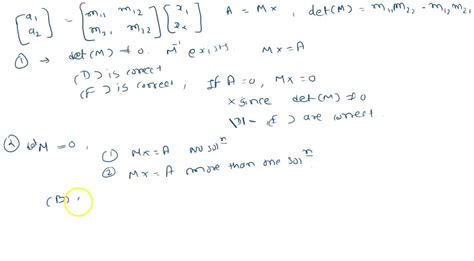 [a₁ a₂] = [m₁₁ m₁₂ m₂₁ m₁₂] [x₁ x₂] A = Mx, det(M) = m₁₁m₂₂ - m₁₂m₂₁
① → det(M) ≠ 0. M⁻¹ exists. Mx = A
(D) is correct
(F) is correct, If A = 0, Mx = 0
x since det(M) ≠ 0
F) are correct.
② M = 0, (1) Mx = A no solⁿ
② Mx = A more than one solⁿ
(B),